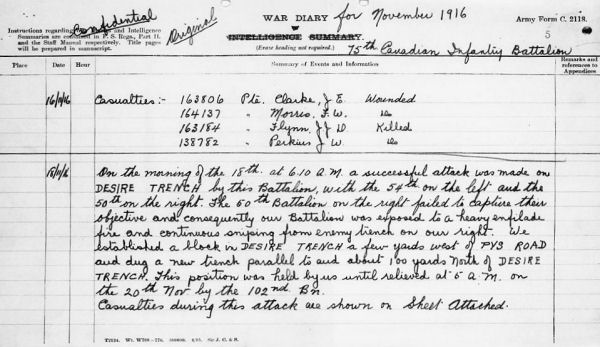 Confidential
Original
WAR DIARY for November 1916
Army Form C. 2118.
5
Instructions regarding War Diaries and Intelligence
Summaries are contained in F. S. Regs., Part II.
and the Staff Manual respectively. Title pages
will be prepared in manuscript.
or
INTELLIGENCE SUMMARY.
(Erase heading not required.)
75th Canadian Infantry Battalion
Place
Date
Hour
Summary of Events and Information
Remarks and
references to
Appendices
16/11/16 Casualties:- 163806 Pte. Clarke, J E. Wounded
164137 " Morris, F. W. do
163184 " Flynn, J J D. Killed
138782 " Perkins J W. do
18/11/16 On the morning of the 18th. at 6.10 A.M. a successful attack was made on
DESIRE TRENCH by this Battalion, with the 54th on the left and the
50th on the right. The 50th Battalion on the right failed to capture their
objective and consequently our Battalion was exposed to a heavy enfilade
fire and continuous sniping from enemy trench on our right. We
established a block in DESIRE TRENCH a few yards west of PYS ROAD
and dug a new trench parallel to and about 100 yards North of DESIRE
TRENCH. This position was held by us until relieved at 5 A.M. on
the 20th Nov by the 102nd. Bn.
Casualties during this attack are shown on Sheet Attached.
Sir J. C. & S.